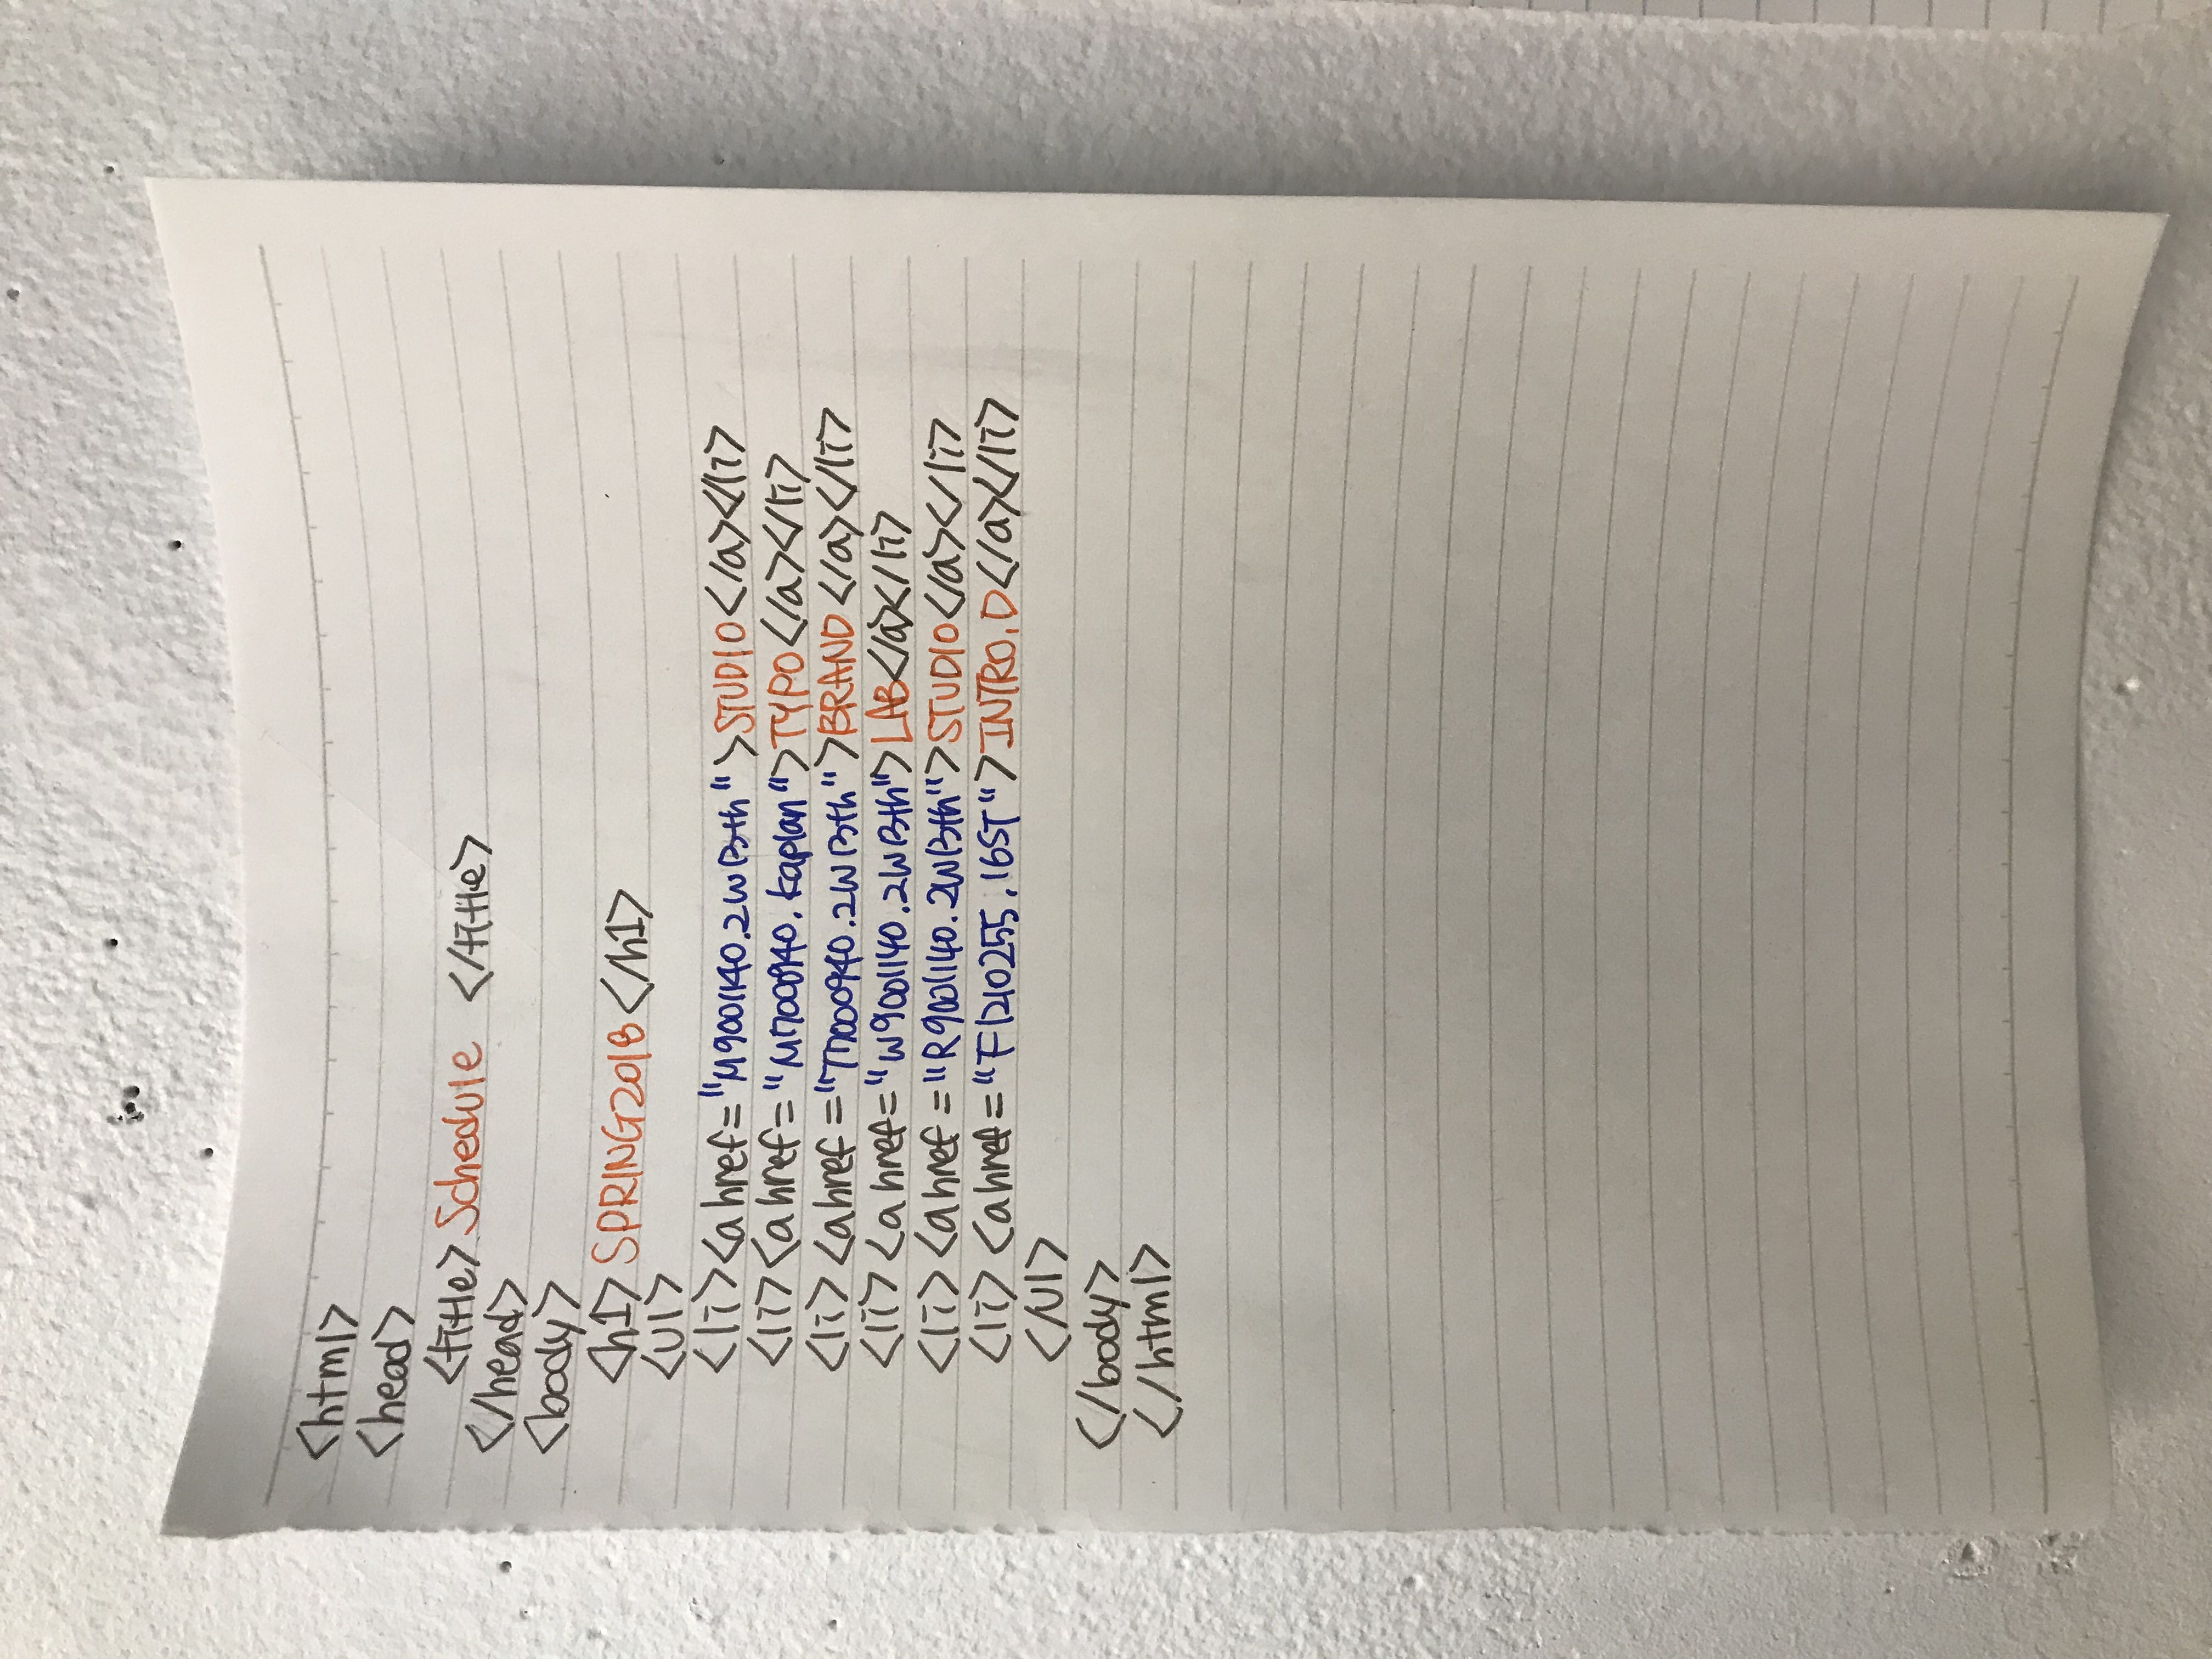 <html>
<head>
<title> Schedule </title>
</head>
<body>
<h1> SPRING2018 </h1>
<ul>
<li><a href="M9001140.2W13th">STUDIO</a></li>
<li><a href="M7000940.Kaplan">TYPO</a></li>
<li><a href="T7000940.2W13th">BRAND</a></li>
<li><a href="W9001140.2W13th">LAB</a></li>
<li><a href="R9001140.2W13th">STUDIO</a></li>
<li><a href="F1210255.16ST">INTRO.D</a></li>
</ul>
</body>
</html>